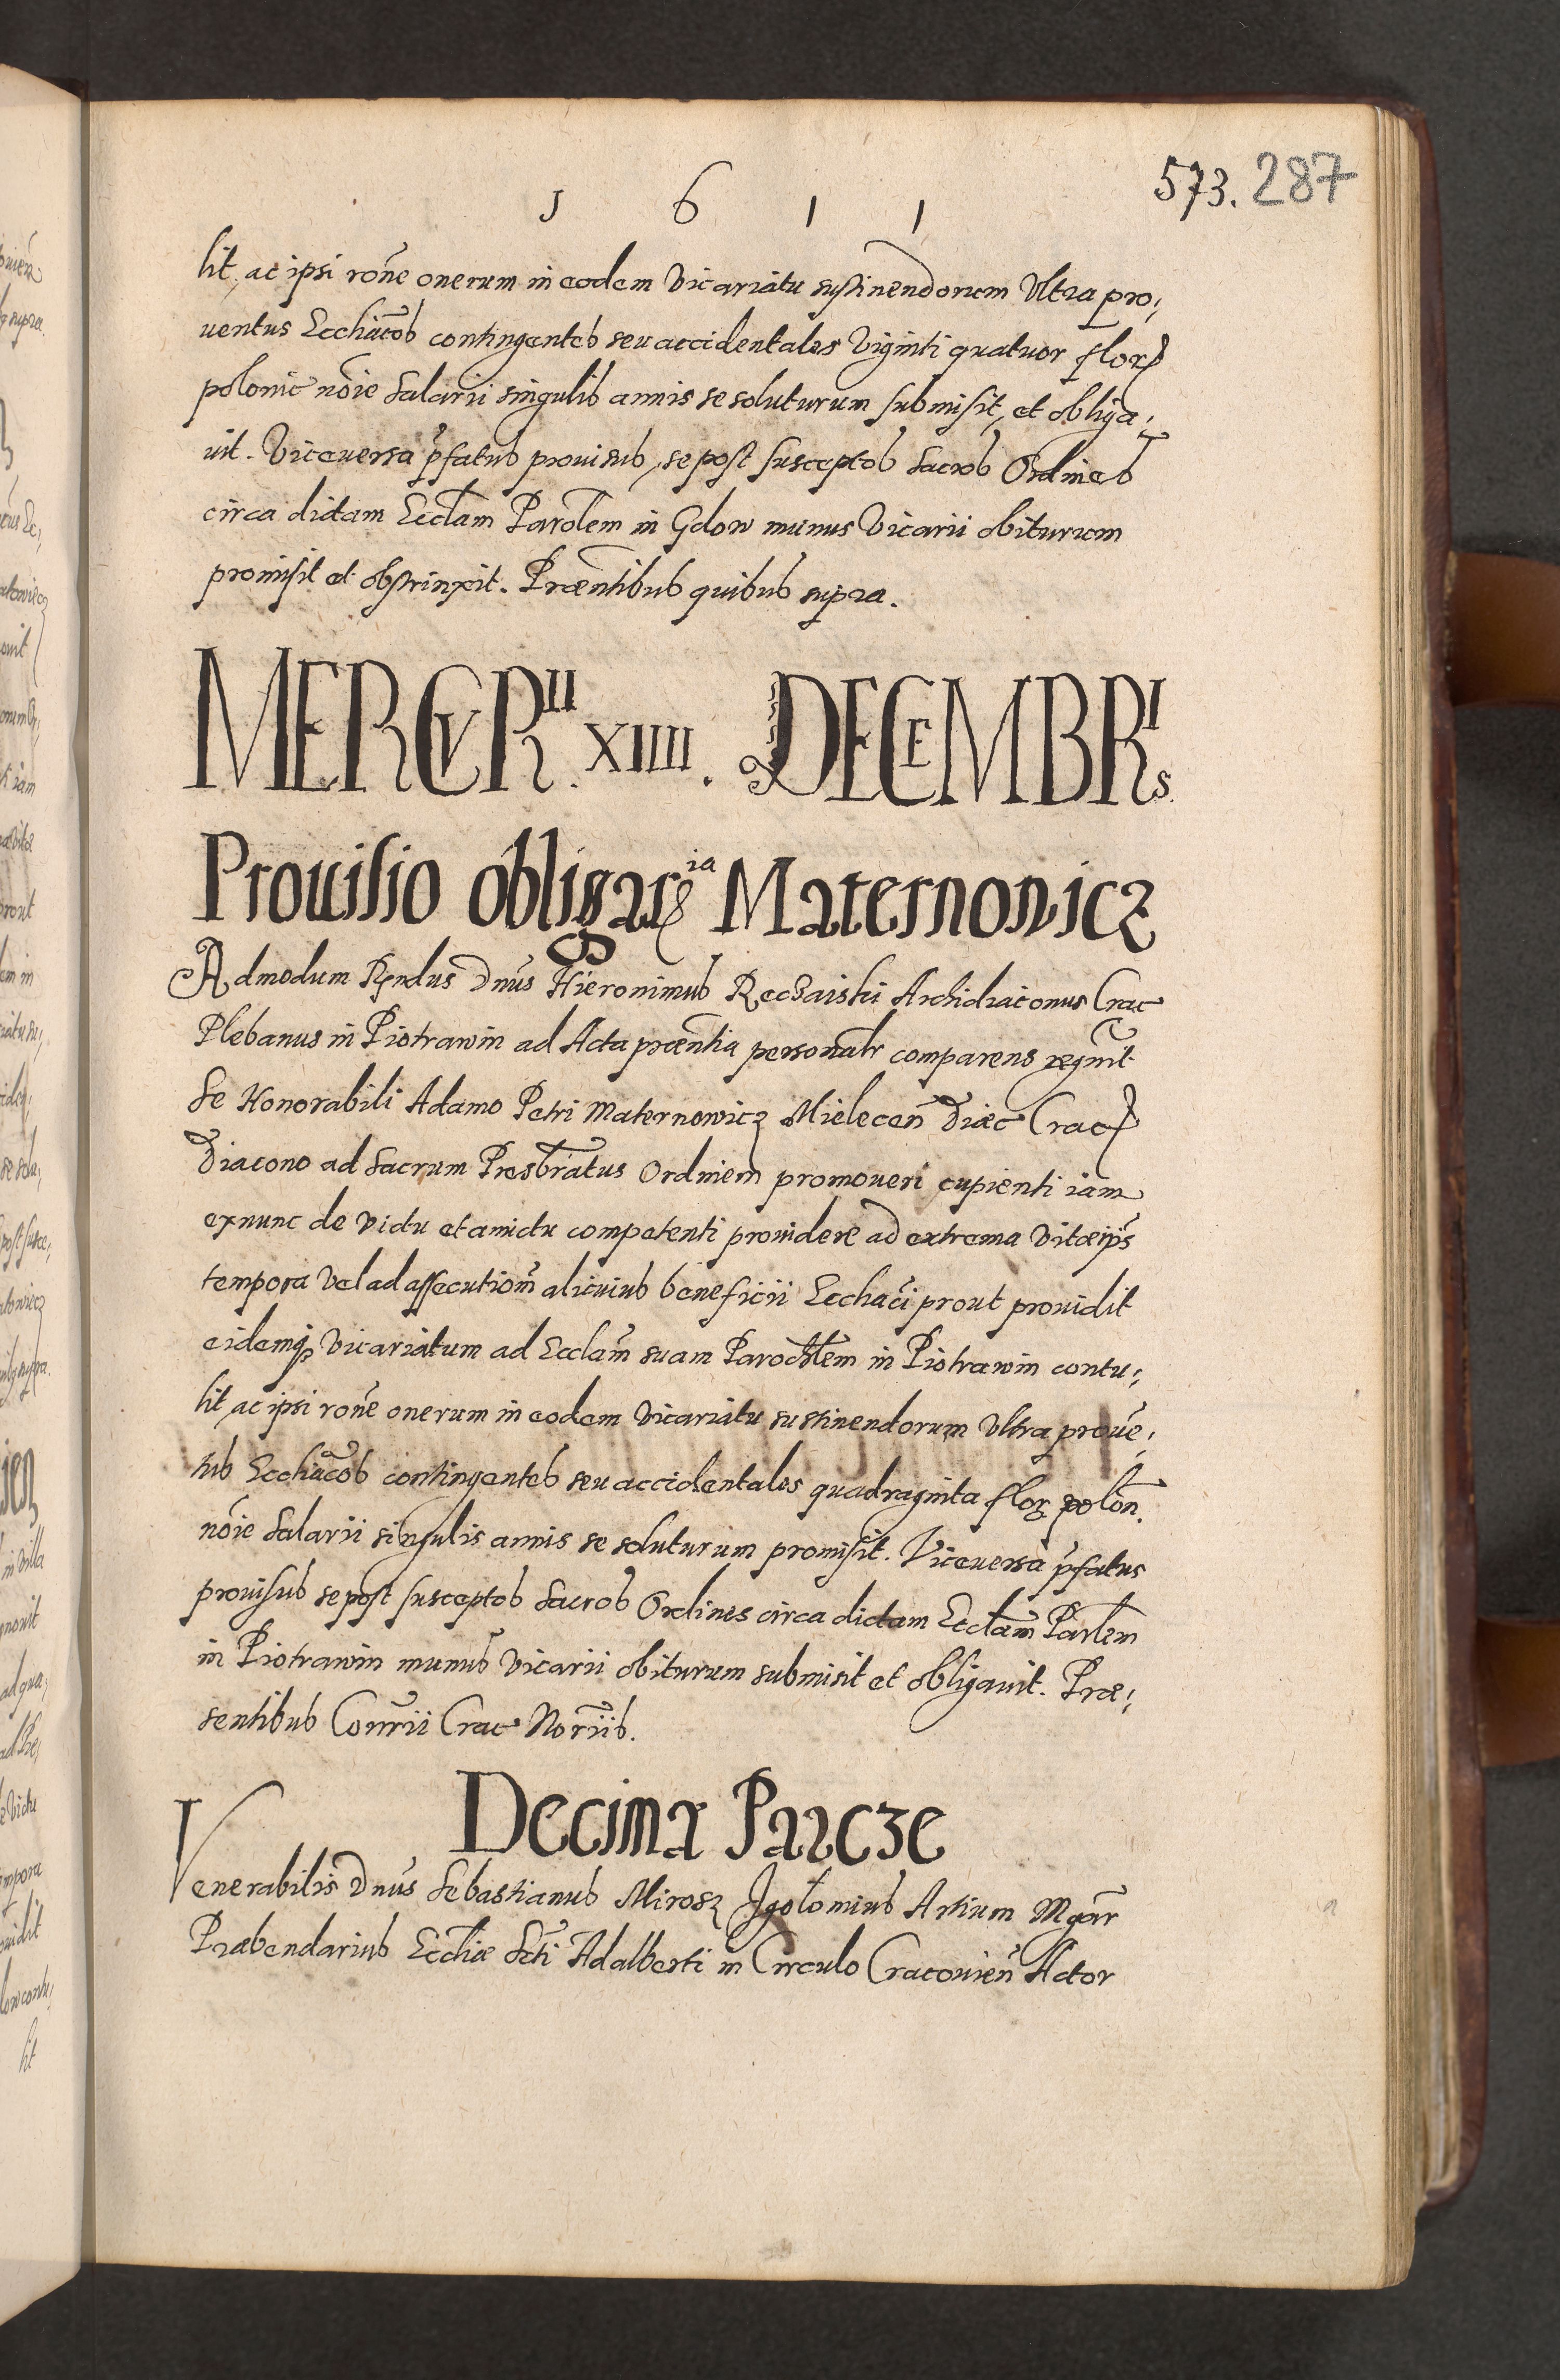 1 6 1 1
573. 287
lit, ac ipsi rone onerum in eodem Vicariatu sustinendorum Vltra pro;
uentus Ecchiacos contingentes seu accidentales Viginti quatuor flor
polonic noie Salarii singulis annis se soluturum submisit, et obliga;
uit. Viceuersa pfatus prouisus, se post susceptos Sacros Ordines
circa dictam Ecclam Parolem in Gdow munus Vicarii obiturum
promisit et obstrinxit. Praentibus quibus supra.
MERCVRII XIIII. DECEMBRIs.
Prouisio obligaria Maternowicz
Admodum Rndus Dnus Hieronimus Reczaiski Archidiaconus Crac
Plebanus in Piotrawin ad Acta praentia personalr comparens regnuit
Se Honorabili Adamo Petri Maternowicz Mielecen Diaec Crac
Diacono ad Sacrum Presbriatus Ordinem promoueri cupienti iam
exnunc de victu et amictu competenti prouidere ad extrema vitae ips
tempora Vel ad assecutiom alicuius beneficii Ecchaci prout prouidit
eidemq Vicariatum ad Ecclam suam Parochlem in Piotrawin contu;
lit, ac ipsi rone onerum in eodem Vicariatu sustinendorum Vltra proue;
tus Ecchiacos contingentes seu accidentales quadraginta flor polon.
noie Salarii singulis annis se soluturum promisit. Viceuersa pfatus
prouisus se post susceptos Sacros Ordines circa dictam Ecclam Parlem
in Piotrawin munus Vicarii obiturum submisit et obligauit. Prae;
sentibus Conrii Crac Noriis.
Decima Parcze
Venerabilis Dnus Sebastianus Mirosz Igolomius Artium Mgr
Praebendarius Ecchiae Scti Adalberti in Circulo Cracouien Actor